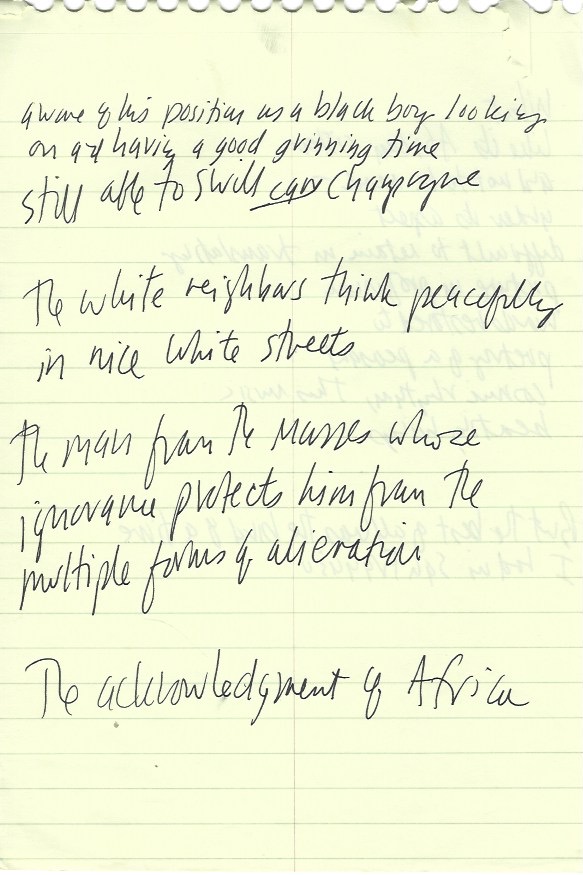 aware of his position as a black boy looking
on and having a good grinning time
still able to swill champagne
The white neighbors think peacefully
in nice white streets
The man from the Masses whose
ignorance protects him from the
multiple forms of alienation
The acknowledgment of Africa